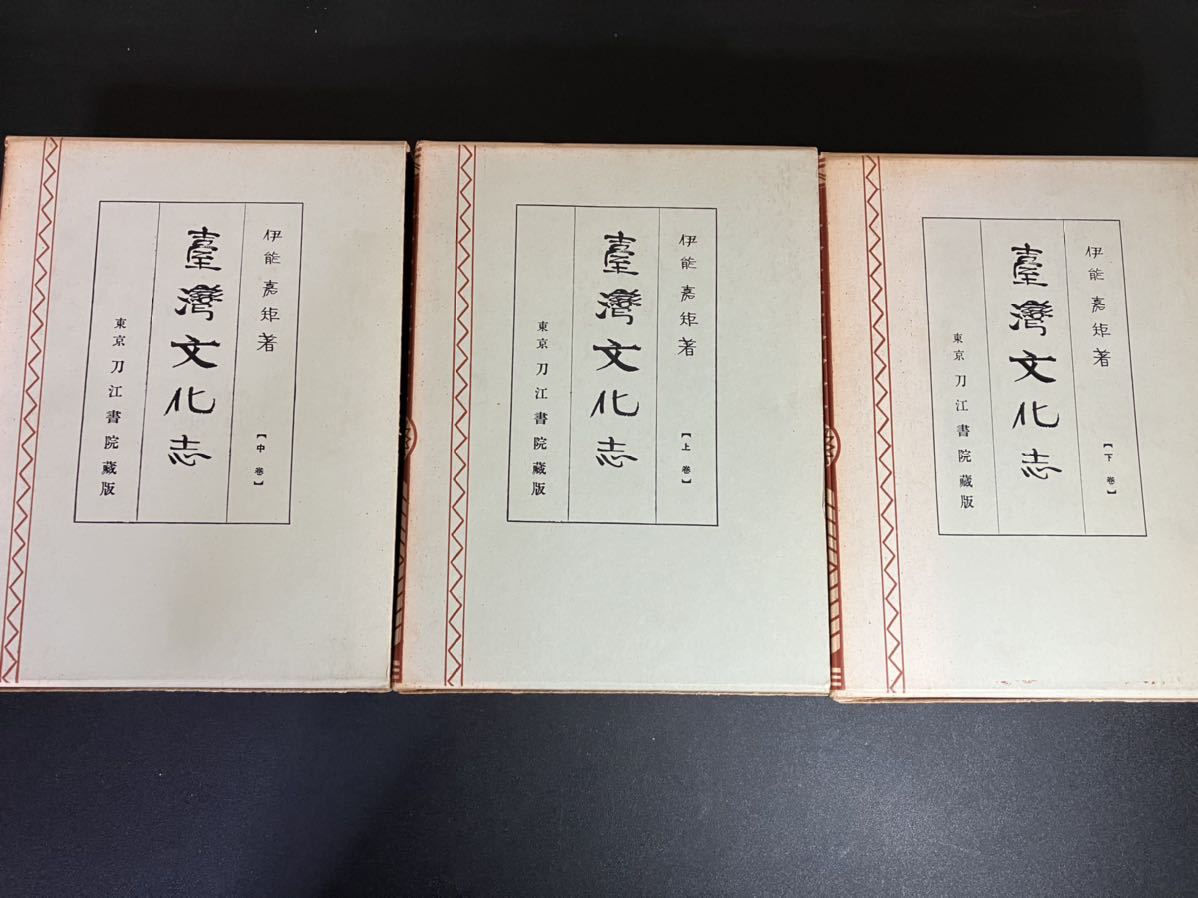 伊能嘉矩著
【中巻】
臺灣文化志
東京 刀江書院藏版
伊能嘉矩著
【上巻】
臺灣文化志
東京 刀江書院藏版
伊能嘉矩著
【下巻】
臺灣文化志
東京 刀江書院藏版